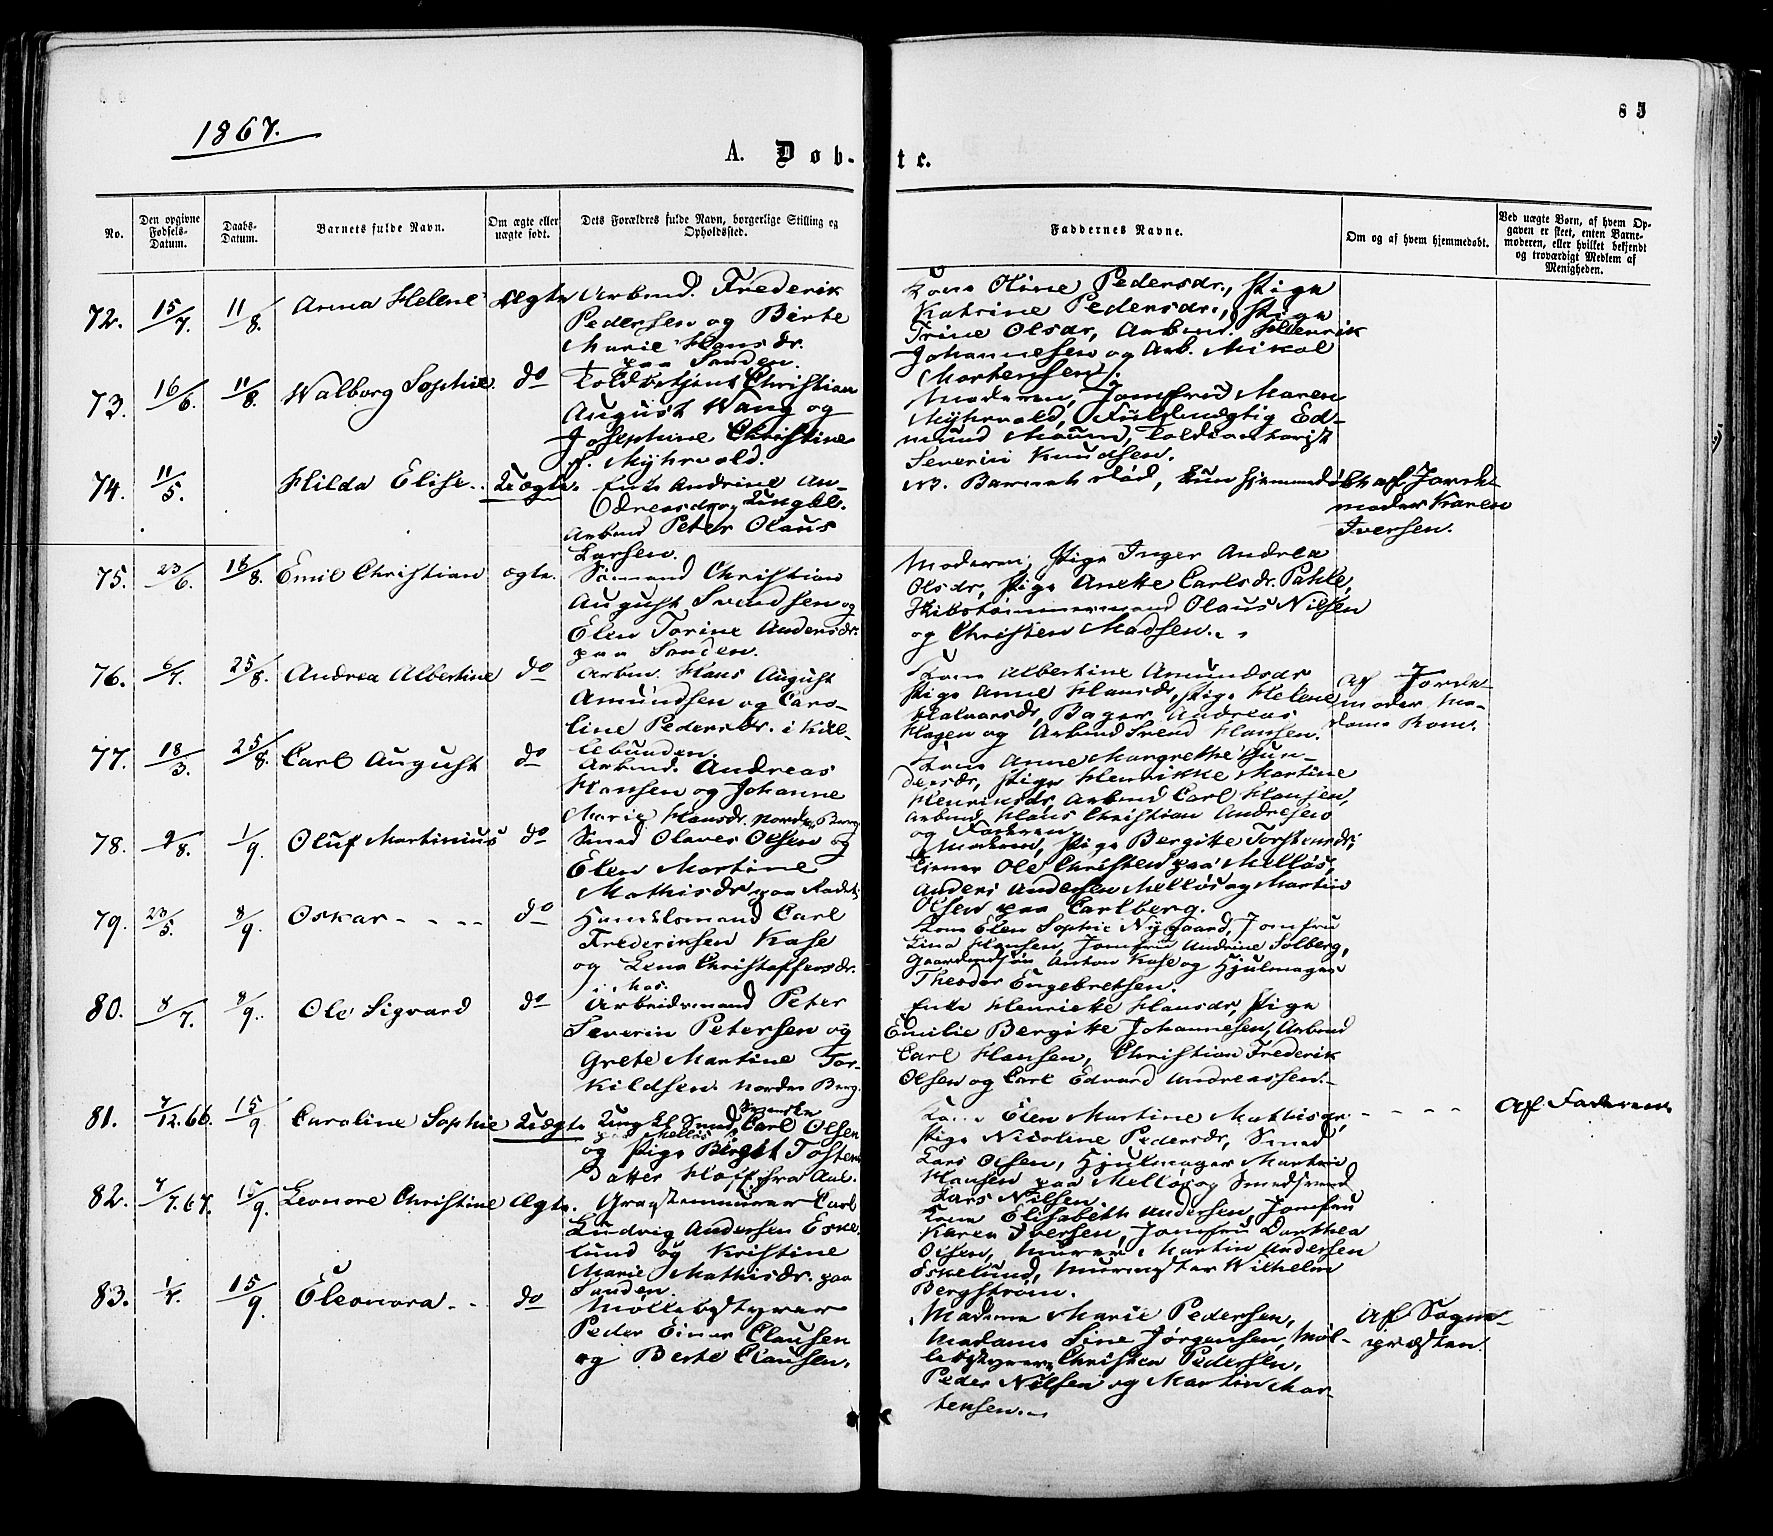 1867.
8 5
A. Døb-
te.
No.
Den opgivne Fødsels-Datum.
Daabs-Datum.
Barnets fulde Navn.
Om ægte eller uægte født.
Dets Forældres fulde Navn, borgerlige Stilling og Opholdssted.
Faddernes Navne.
Om og af hvem hjemmedøbt.
Ved uægte Børn, af hvem Opgaven er skeet, enten Barnemoderen, eller hvilket bekjendt og troværdigt Medlem af Menigheden.
72. 15/7. 11/8. Anna Helene Ægte
Arbmd. Frederik
Pedersen og Birte
Marie Hansdr.
paa Sanden.
Kone Oline Pedersdr., Pige
Katrine Pedersdr., Pige
Trine Olsdr, Arbmd. Henrik
Johannesen og Arb. Mikal
Mortensen.
73. 16/6. 11/8. Walborg Sophie do
Toldbetjent Christian
August Wang og
Josephine Christine
f. Myhrvold.
Moderen, Jomfru Maren
Myhrvold, Fuldmægtig Ed-
mund Maum, Toldkontorist
Severin Knudsen.
74. 11/5. Hilda Elise. Uægte.
Enke Andrine An-
dreasdr og Ungkl.
Arbmd Peter Olaus
Larsen.
NB. Barnet død, kun hjemmedøbt af Jorde
moder Karen
Iversen.
75. 23/6. 18/8. Emil Christian ægte.
Sømand Christian
August Svendsen og
Elen Torine Andersdr.
paa Sanden.
Moderen, Pige Inger Andrea
Olsdr, Pige Anette Carlsdr. Pahle,
Skibstømmermand Olaus Nilsen
og Christen Madsen.
76. 6/7. 25/8. Andrea Albertine do
Arbm. Hans August
Amundsen og Caro-
line Pedersdr. i Kil-
lebunden.
Kone Albertine Amundsdr
Pige Anne Hansdr, Pige Helene
Halvorsdr, Bager Andreas
Hagen og Arbmd Svend Hansen.
Af Jorde-
moder Ma-
dame Rom.
77. 18/3. 25/8. Carl August do
Arbmd. Andreas
Hansen og Johanne
Marie Hansdr. Nordre Berg
Kone Anne Margrethe Gun-
dersdr, Pige Henrikke Martine
Henriksdr, Arbmd Carl Hansen,
Arbmd Hans Christian Andresen
og Faderen.
78. 9/8. 1/9. Oluf Martinius do
Smed Olaves Olsen og
Elen Martine
Mathisdr paa
Moderen, Pige Bergitte Torstensdr,
Eiener Ole Christen paa Melløs,
Anders Andersen Melløs og Martin
Olsen paa Carlberg.
79. 23/5. 8/9. Oskar - - - - do
Handelsmand Carl
Frederiksen Kase
og Lena Christoffersdr.
i Mos.
Kone Elen Sophie Nygaard, Jomfru
Lina Hansen, Jomfru Andrine Solberg,
Gaardmdsøn Anton Kase og Hjulmager
Theodor Engebretsen.
80. 8/7. 8/9. Ole Sigvard do
Arbeidsmand Peter
Severin Petersen og
Grete Martine Tor-
kildsen. Nordre Berg.
Enke Henrikke Hansdr, Pige
Emilie Bergitte Johannesen, Arbmd
Carl Hansen, Christian Frederik
Olsen og Carl Edvard Andreassen.
81. 7/12.66. 15/9 Caroline Sophie Uægte
Ungkl Smed Svenske Carl Olsen
paa Melløs
og Pige Birgit Tosten
Datter Hoff fra Aal.
Kone Elen Martine Mathisdr,
Pige Nicoline Pedersdr, Smed
Lars Olsen, Hjulmager Martin
Hansen paa Melløs og Smedsvend
Lars Nilsen.
- - - -
Af Faderen.
82. 7/7.67. 15/9. Leonore Christine Ægte.
Graastenmurer Carl
Ludvig Andersen Eske-
lund og Kristine
Marie Mathisdr. paa
Sanden.
Kone Elisabeth Andersen, Jomfru
Karen Iversen, Jomfru Dorthea
Olsen, Murer Martin Andersen
Eskelund, Murmester Wilhelm
Bergstrøm.
83. 1/7. 15/9. Eleonora - - do
Møllebestyrer
Peder Einar Clausen
og Berte Clausen.
Madame Marie Pedersen,
Madame Sine Jørgensen, Møl-
lebestyrer Christen Pedersen,
Peder Nilsen og Martin Mor-
tensen.
Af Sogne-
præsten.